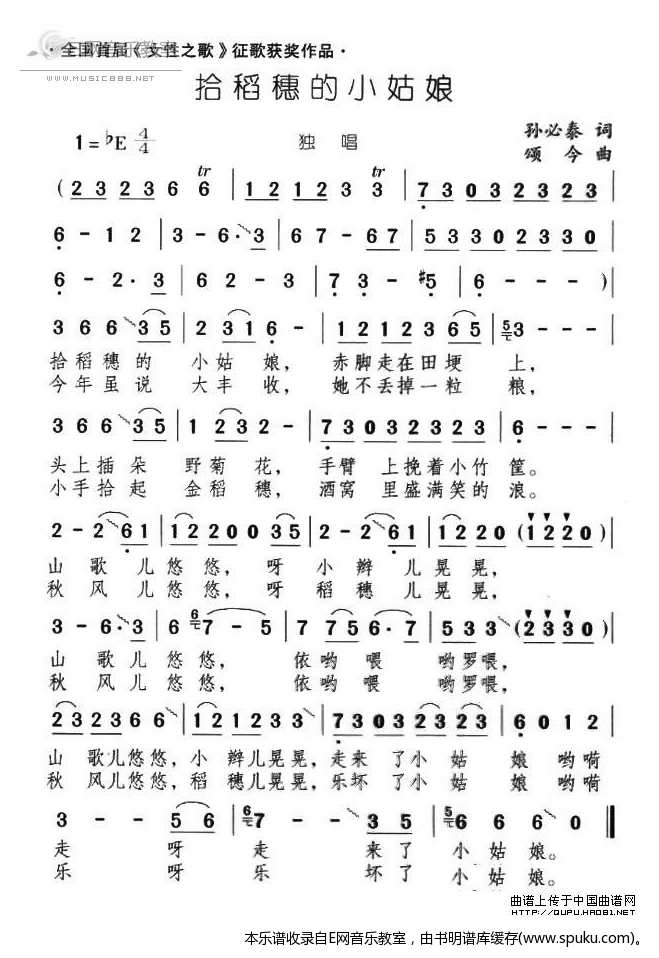 ·全国首届《女性之歌》征歌获奖作品·
E网音乐教室
WWW.MUSIC888.NET
拾稻穗的小姑娘
1=♭E 4/4
独唱
孙必泰 词
颂今 曲
(2 3 2 3 6 6 | 1 2 1 2 3 3 | 7 3 0 3 2 3 2 3 |
6 - 1 2 | 3 - 6· 3 | 7 6 - 6 7 | 5 3 3 0 2 3 3 0 |
6 - 2· 3 | 6 2 - 3 | 7 3 - #5 | 6 - - - ) |
3 6 6 3 5 | 2 3 1 6 - | 1 2 1 2 3 6 5 | 5 3 - - |
拾稻穗的 小姑 娘, 赤脚走在田埂 上,
今年虽说 大丰 收, 她不丢掉一粒 粮,
3 6 6 3 5 | 1 2 3 2 - | 7 3 0 3 2 3 2 3 | 6 - - - |
头上插朵 野菊花, 手臂 上挽着小竹 筐。
小手拾起 金稻穗, 酒窝 里盛满笑的 浪。
2 - 2 6 1 | 1 2 2 0 0 3 5 | 2 - 2 6 1 | 1 2 2 0 (1 2 2 0 |
山 歌 儿 悠悠, 呀 小 辫 儿 晃晃,
秋 风 儿 悠悠, 呀 稻 穗 儿 晃晃,
3 - 6· 3 | 6 6 7 - 5 | 7 7 5 6· 7 | 5 3 3 - (2 3 3 0 |
山 歌 儿 悠 悠, 依 哟 喂 哟罗喂,
秋 风 儿 悠 悠, 依 哟 喂 哟罗喂,
2 3 2 3 6 6 | 1 2 1 2 3 3 | 7 3 0 3 2 3 2 3 | 6 0 1 2 |
山 歌儿悠悠, 小 辫儿晃晃, 走来 了小 姑 娘 哟嗬
秋 风儿悠悠, 稻 穗儿晃晃, 乐坏 了小 姑 娘 哟嗬
3 - - 5 6 | 6 7 - - 3 5 | 5 6 6 6 0 ‖
走 呀 走 来 了 小 姑 娘。
乐 呀 乐 坏 了 小 姑 娘。
曲谱上传于中国曲谱网
HTTP://QUPU.HAO81.NET
本乐谱收录自E网音乐教室，由书明谱库缓存(www.spuku.com).